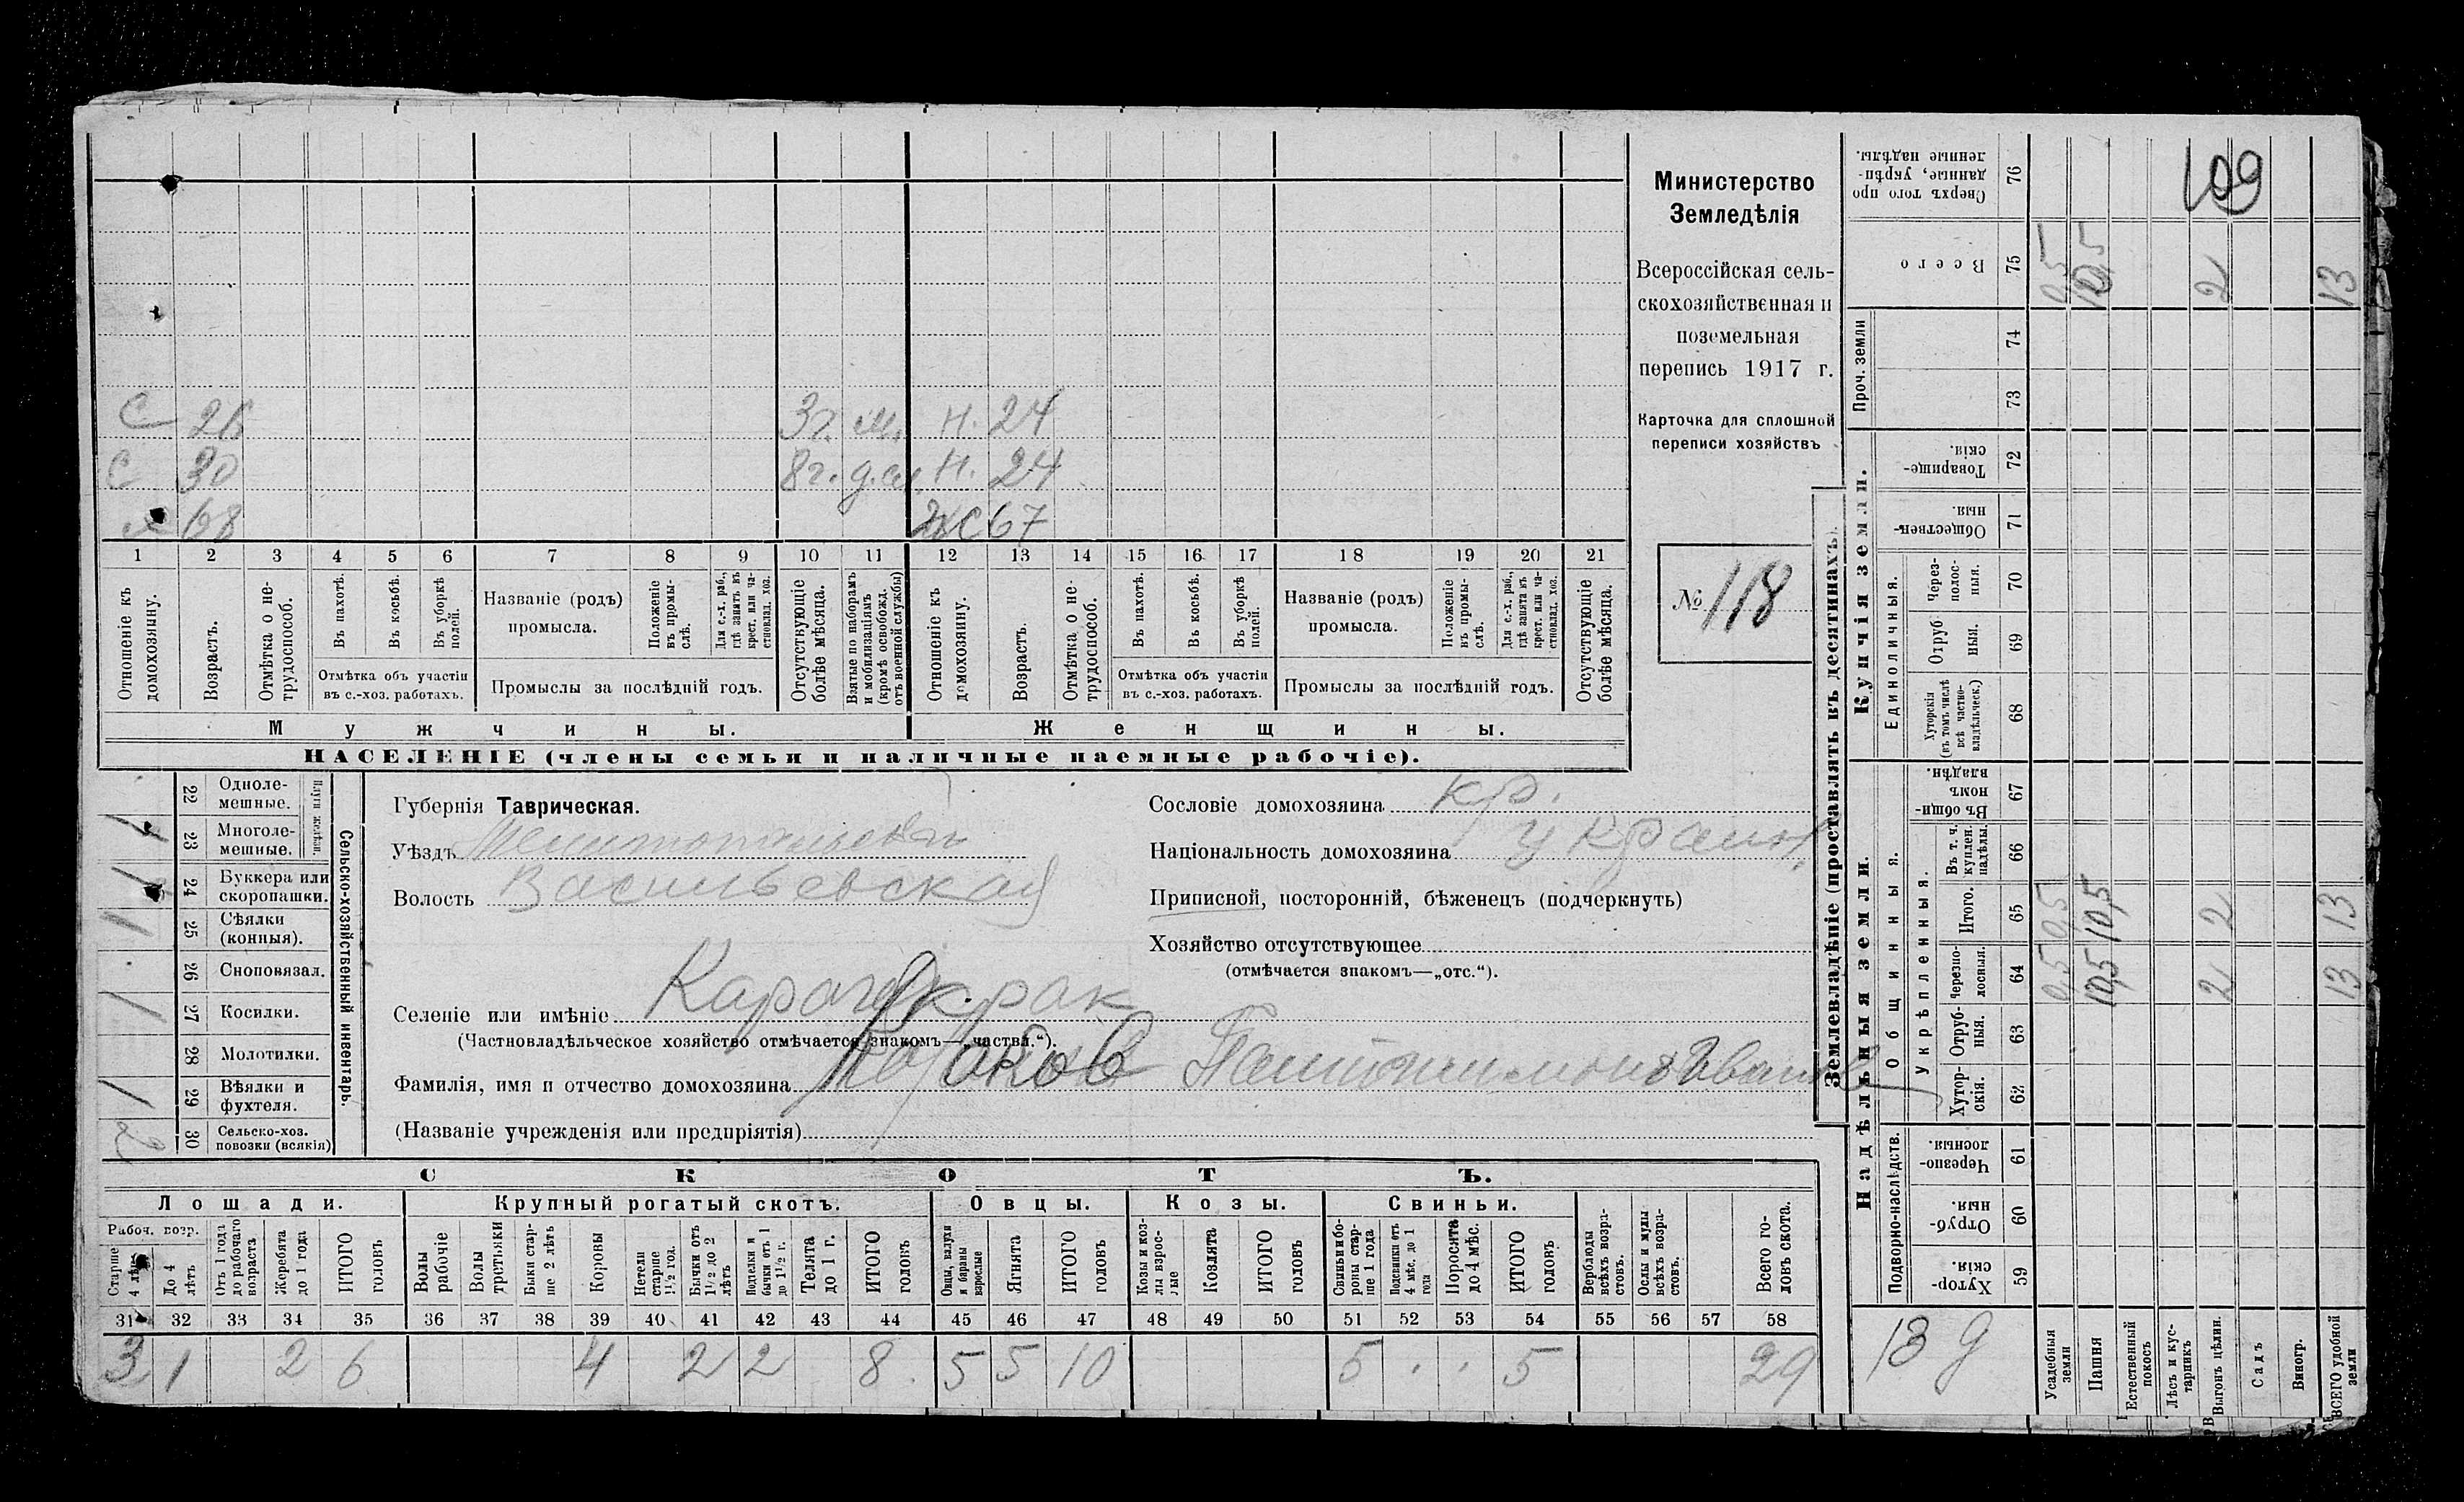 109
Министерство
Земледѣлія
Всероссійская сель-
скохозяйственная и
поземельная
перепись 1917 г.
Карточка для сплошной
переписи хозяйствъ
№ 118
С 26 3г. м. Н. 24
С 30 8г. Н. 24
х 68 ж С 67
1 2 3 4 5 6 7 8 9 10 11 12 13 14 15 16 17 18 19 20 21
Отношеніе къ домохозяину.
Возрастъ.
Отмѣтка о не-трудоспособ.
Въ пахотѣ.
Въ косьбѣ.
Въ уборкѣ полей.
Отмѣтка объ участіи
въ с.-хоз. работахъ.
Названіе (родъ)
промысла.
Положеніе въ промы-слѣ.
Для с.-х. раб., гдѣ занятъ въ крест. или ча-стновлад. хоз.
Промыслы за послѣдній годъ.
Отсутствующіе болѣе мѣсяца.
Взятые по наборамъ и мобилизаціямъ (кромѣ освобожд. отъ военной службы)
Отношеніе къ домохозяину.
Возрастъ.
Отмѣтка о не-трудоспособ.
Въ пахотѣ.
Въ косьбѣ.
Въ уборкѣ полей.
Отмѣтка объ участіи
въ с.-хоз. работахъ.
Названіе (родъ)
промысла.
Положеніе въ промы-слѣ.
Для с.-х. раб., гдѣ занятъ въ крест. или ча-стновлад. хоз.
Промыслы за послѣдній годъ.
Отсутствующіе болѣе мѣсяца.
Мужчины. Женщины.
НАСЕЛЕНІЕ (члены семьи и наличные наемные рабочіе).
Сельско-хозяйственный инвентарь.
Плуги желѣзн.
22 Однолемешные.
1 23 Многолемешные.
1 24 Буккера или скоропашки.
1 25 Сѣялки (конныя).
26 Сноповязал.
1 27 Косилки.
28 Молотилки.
1 29 Вѣялки и фухтеля.
2 30 Сельско-хоз. повозки (всякія)
Губернія Таврическая.
Уѣздъ Мелитопольскій
Волость Васильевская
Селеніе или имѣніе Карачекрак
(Частновладѣльческое хозяйство отмѣчается знакомъ—„частвл.“).
Фамилія, имя и отчество домохозяина
(Названіе учрежденія или предпріятія)
Сословіе домохозяина кр.
Національность домохозяина украин.
Приписной, посторонній, бѣженецъ (подчеркнуть)
Хозяйство отсутствующее
(отмѣчается знакомъ—„отс.“).
СКОТЪ.
Лошади. Крупный рогатый скотъ. Овцы. Козы. Свиньи.
Рабоч. возр.
Старше 4 лѣтъ
До 4 лѣтъ
Отъ 1 года до рабочаго возраста
Жеребята до 1 года
ИТОГО головъ
Волы рабочіе
Волы третьяки
Быки стар-ше 2 лѣтъ
Коровы
Нетели старше 1½ год.
Бычки отъ 1½ до 2 лѣтъ
Подтелки и бычки отъ 1 до 1½ г.
Телята до 1 г.
ИТОГО головъ
Овцы, валухи и бараны взрослые
Ягнята
ИТОГО головъ
Козы и коз-лы взрос-лые
Козлята
ИТОГО головъ
Свиньи и бо-ровы стар-ше 1 года
Подсвинки отъ 4 мѣс. до 1 года
Поросята до 4 мѣс.
ИТОГО головъ
Верблюды всѣхъ возра-стовъ.
Ослы и мулы всѣхъ возра-стовъ.
Всего го-ловъ скота.
31 32 33 34 35 36 37 38 39 40 41 42 43 44 45 46 47 48 49 50 51 52 53 54 55 56 57 58
3 1 2 6 4 2 2 8 5 5 10 5 . . 5 29
Землевладѣніе (проставлять въ десятинахъ).
Купчія земли.
Надѣльныя земли.
Сверхъ того про данные, укрѣп-ленные надѣлы. 76
Всего 75 0,5 10,5 2 13
Проч. земли 74
73
Товарище-скія. 72
Обществен-ныя. 71
Единоличныя.
Через-полос-ныя. 70
Отруб ныя. 69
Хуторскія (въ томъ числѣ всѣ частно-владѣльческ.) 68
Общинныя.
Въ общи-номъ владѣн. 67
Укрѣпленныя.
Въ т. ч. куплен. надѣлы. 66
Итого. 65 0,5 10,5 2 13
Черезпо-лосныя. 64 0,5 10,5 2 13
Отруб-ныя. 63
Хутор-скія. 62
Подворно-наслѣдств.
Черезпо-лосныя. 61
Отруб-ныя. 60
Хутор-скія. 59
13 д
Усадебныя земли
Пашня
Естественный покосъ
Лѣсъ и кус-тарникъ
Выгонъ цѣлин.
Садъ
Виногр.
ВСЕГО удобной земли